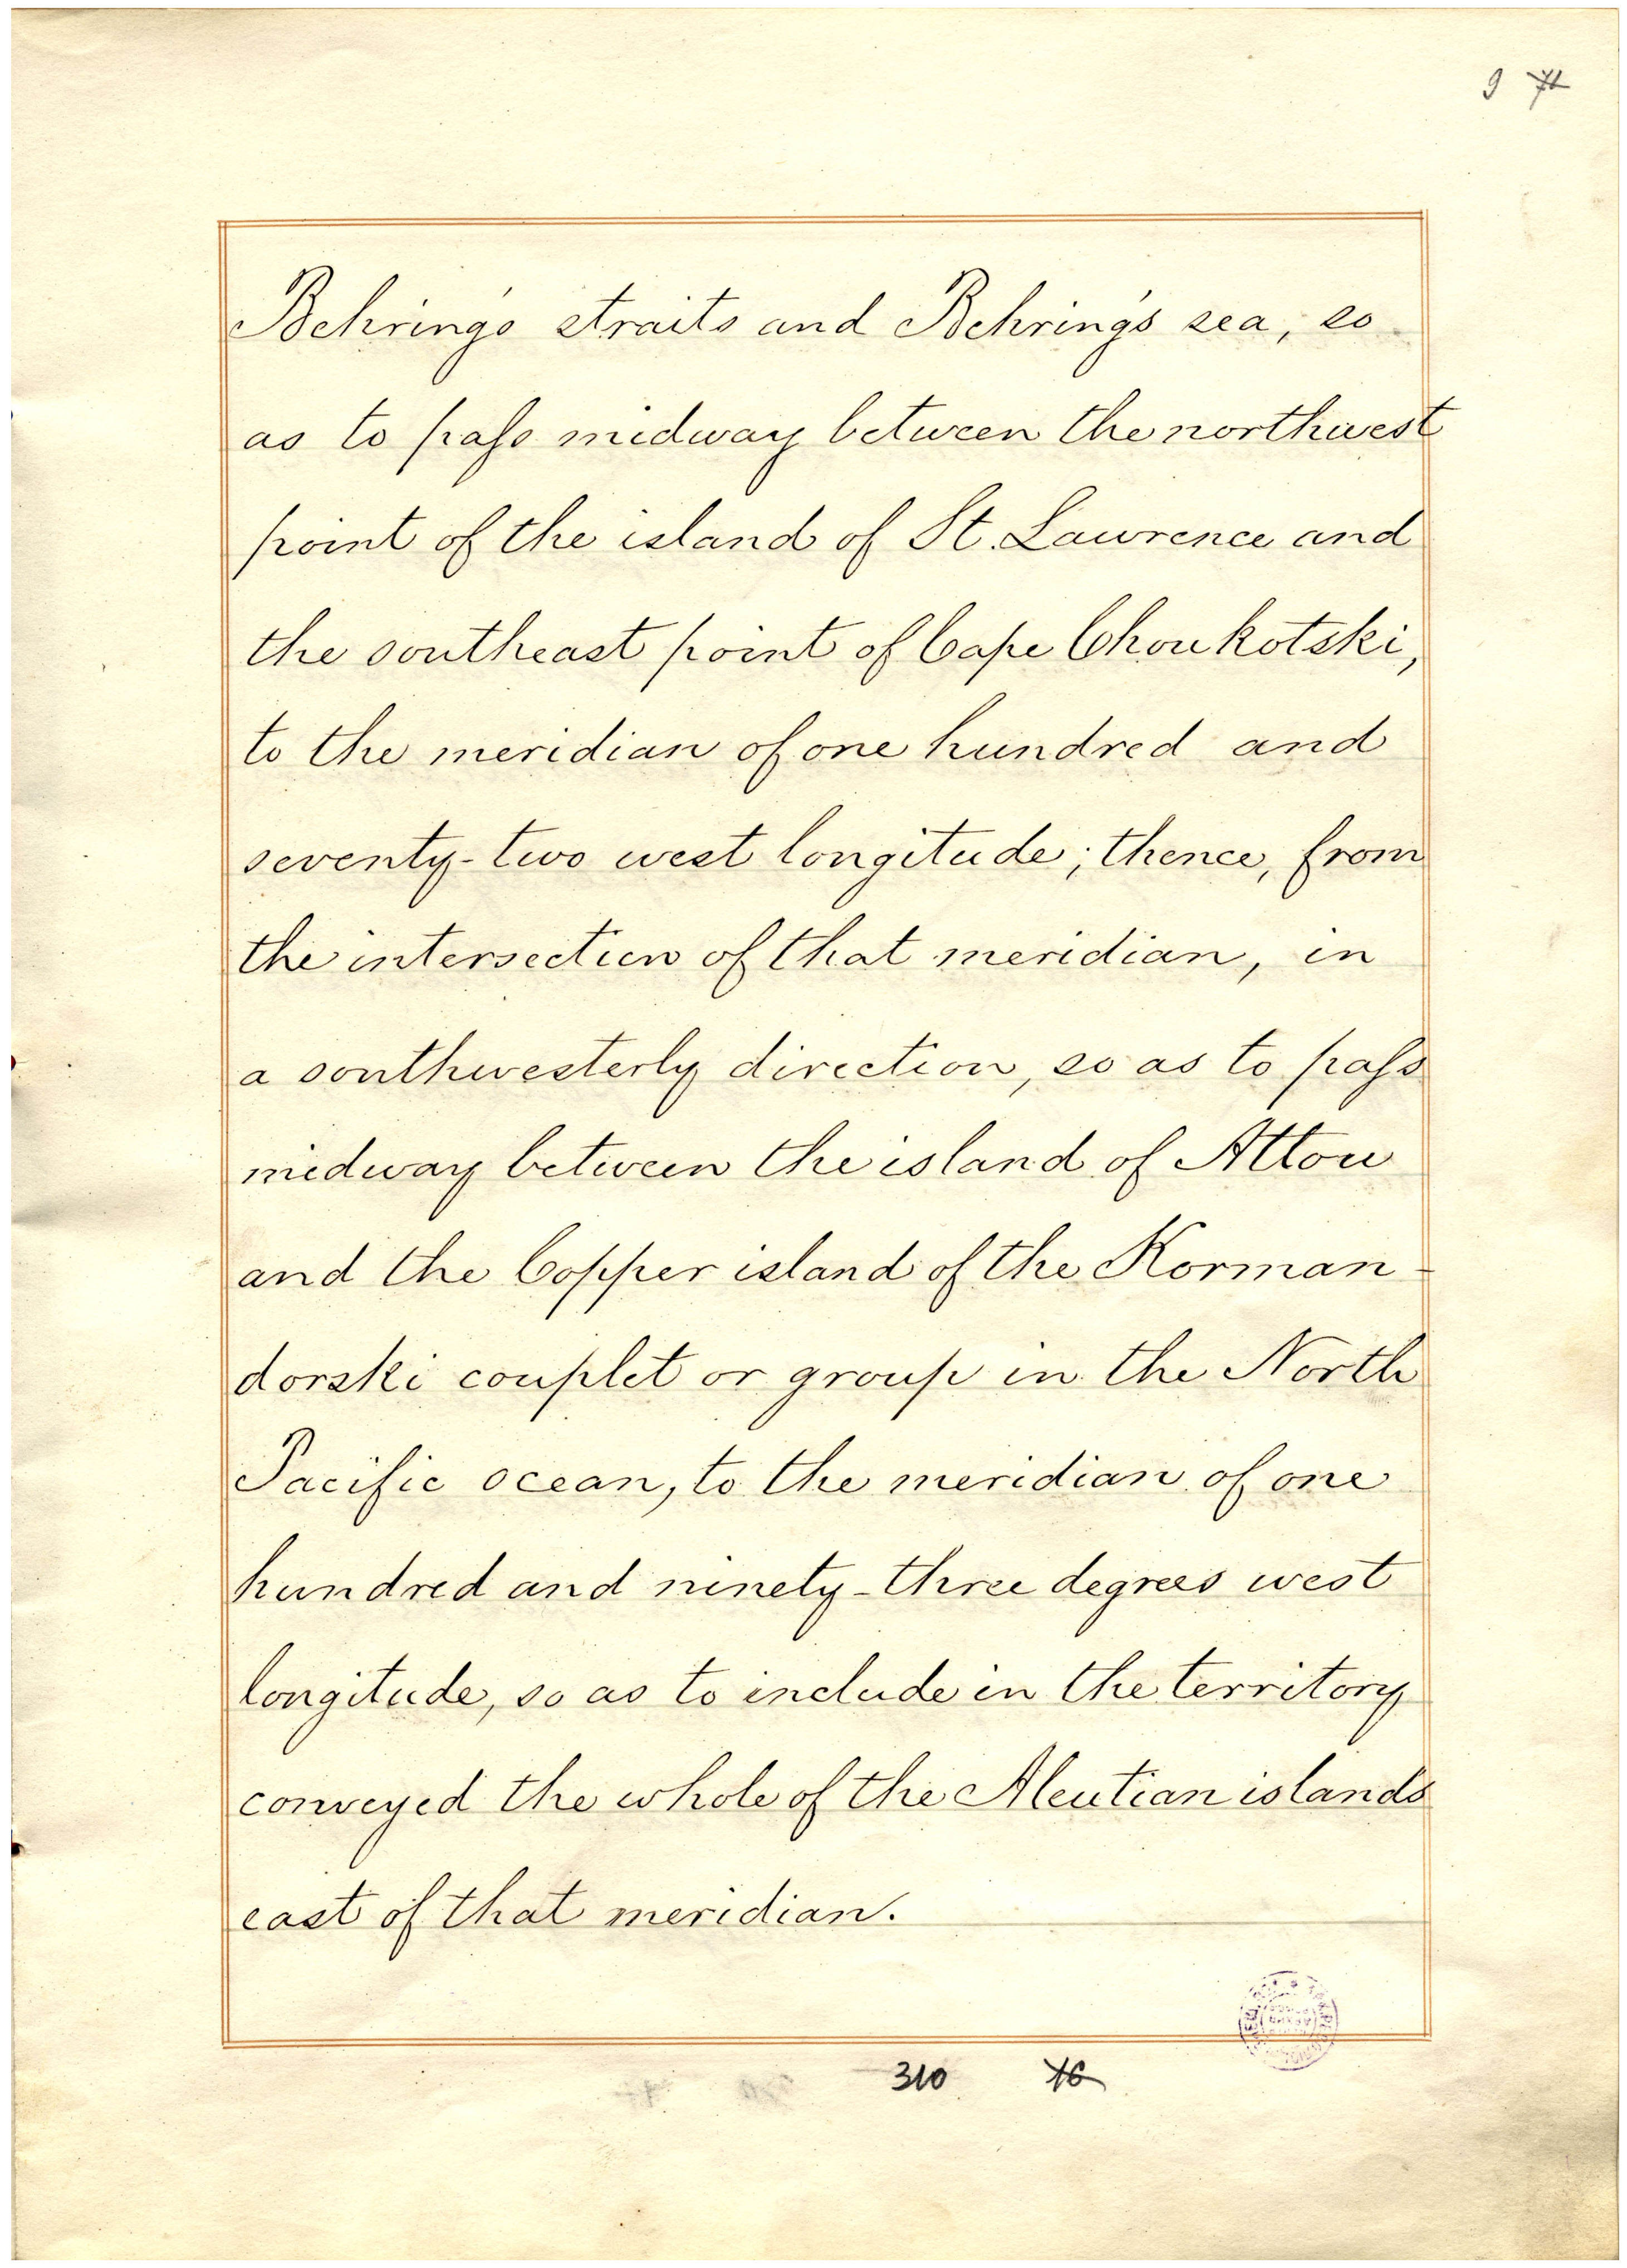 9
Behring's straits and Behring's sea, so
as to pass midway between the northwest
point of the island of St. Lawrence and
the southeast point of Cape Choukotski,
to the meridian of one hundred and
seventy-two west longitude; thence, from
the intersection of that meridian, in
a southwesterly direction, so as to pass
midway between the island of Attou
and the Copper island of the Korman-
dorski couplet or group in the North
Pacific ocean, to the meridian of one
hundred and ninety-three degrees west
longitude, so as to include in the territory
conveyed the whole of the Aleutian islands
east of that meridian.
310